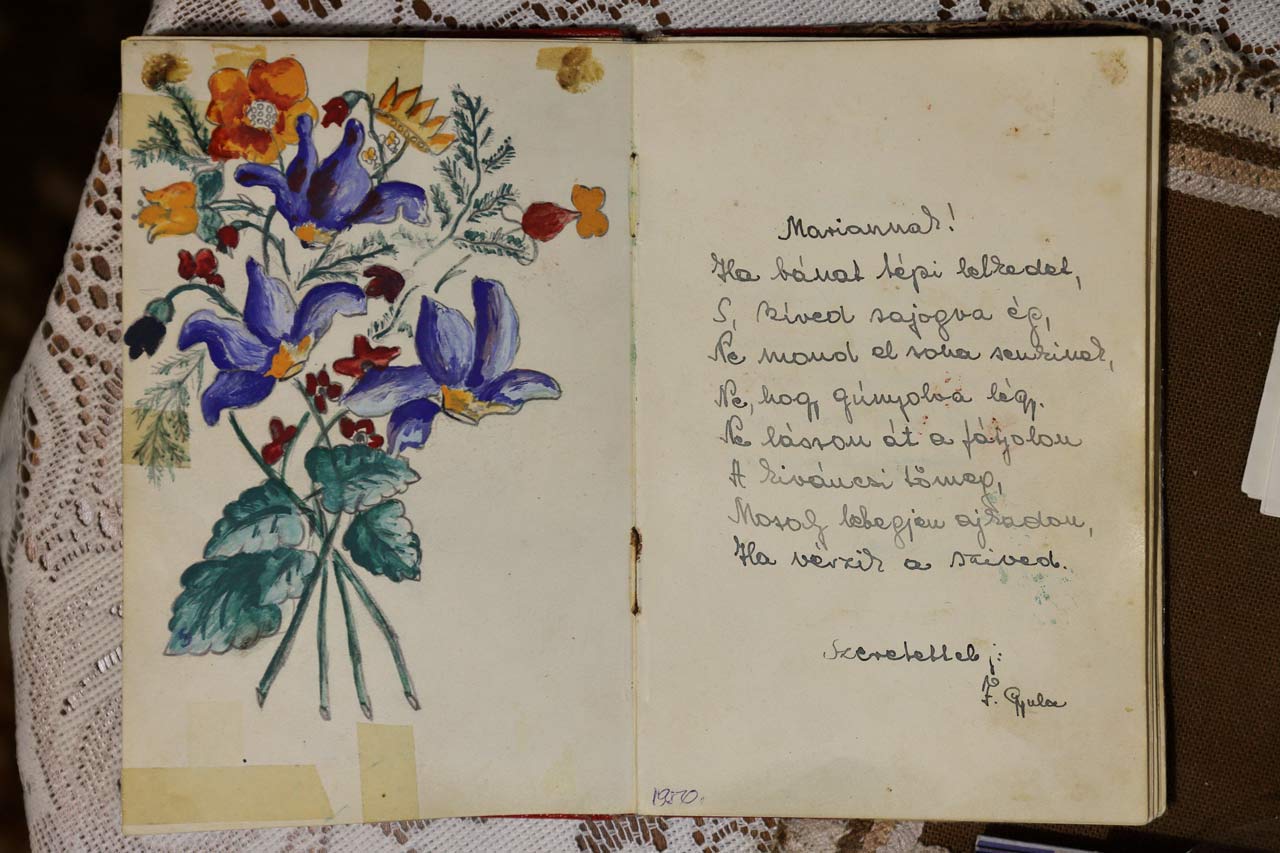 Mariannak!
Ha bánat tépi lelkedet,
S, szíved sajogva ég,
Ne mond el soha senkinek,
Ne, hogy gúnyolva légy.
Ne lásson át a fátyolon
A kiváncsi tömeg,
Mosoly lebegjen ajkadon,
Ha vérzik a szived.
Szeretettel;:
F. Gyula
1950.